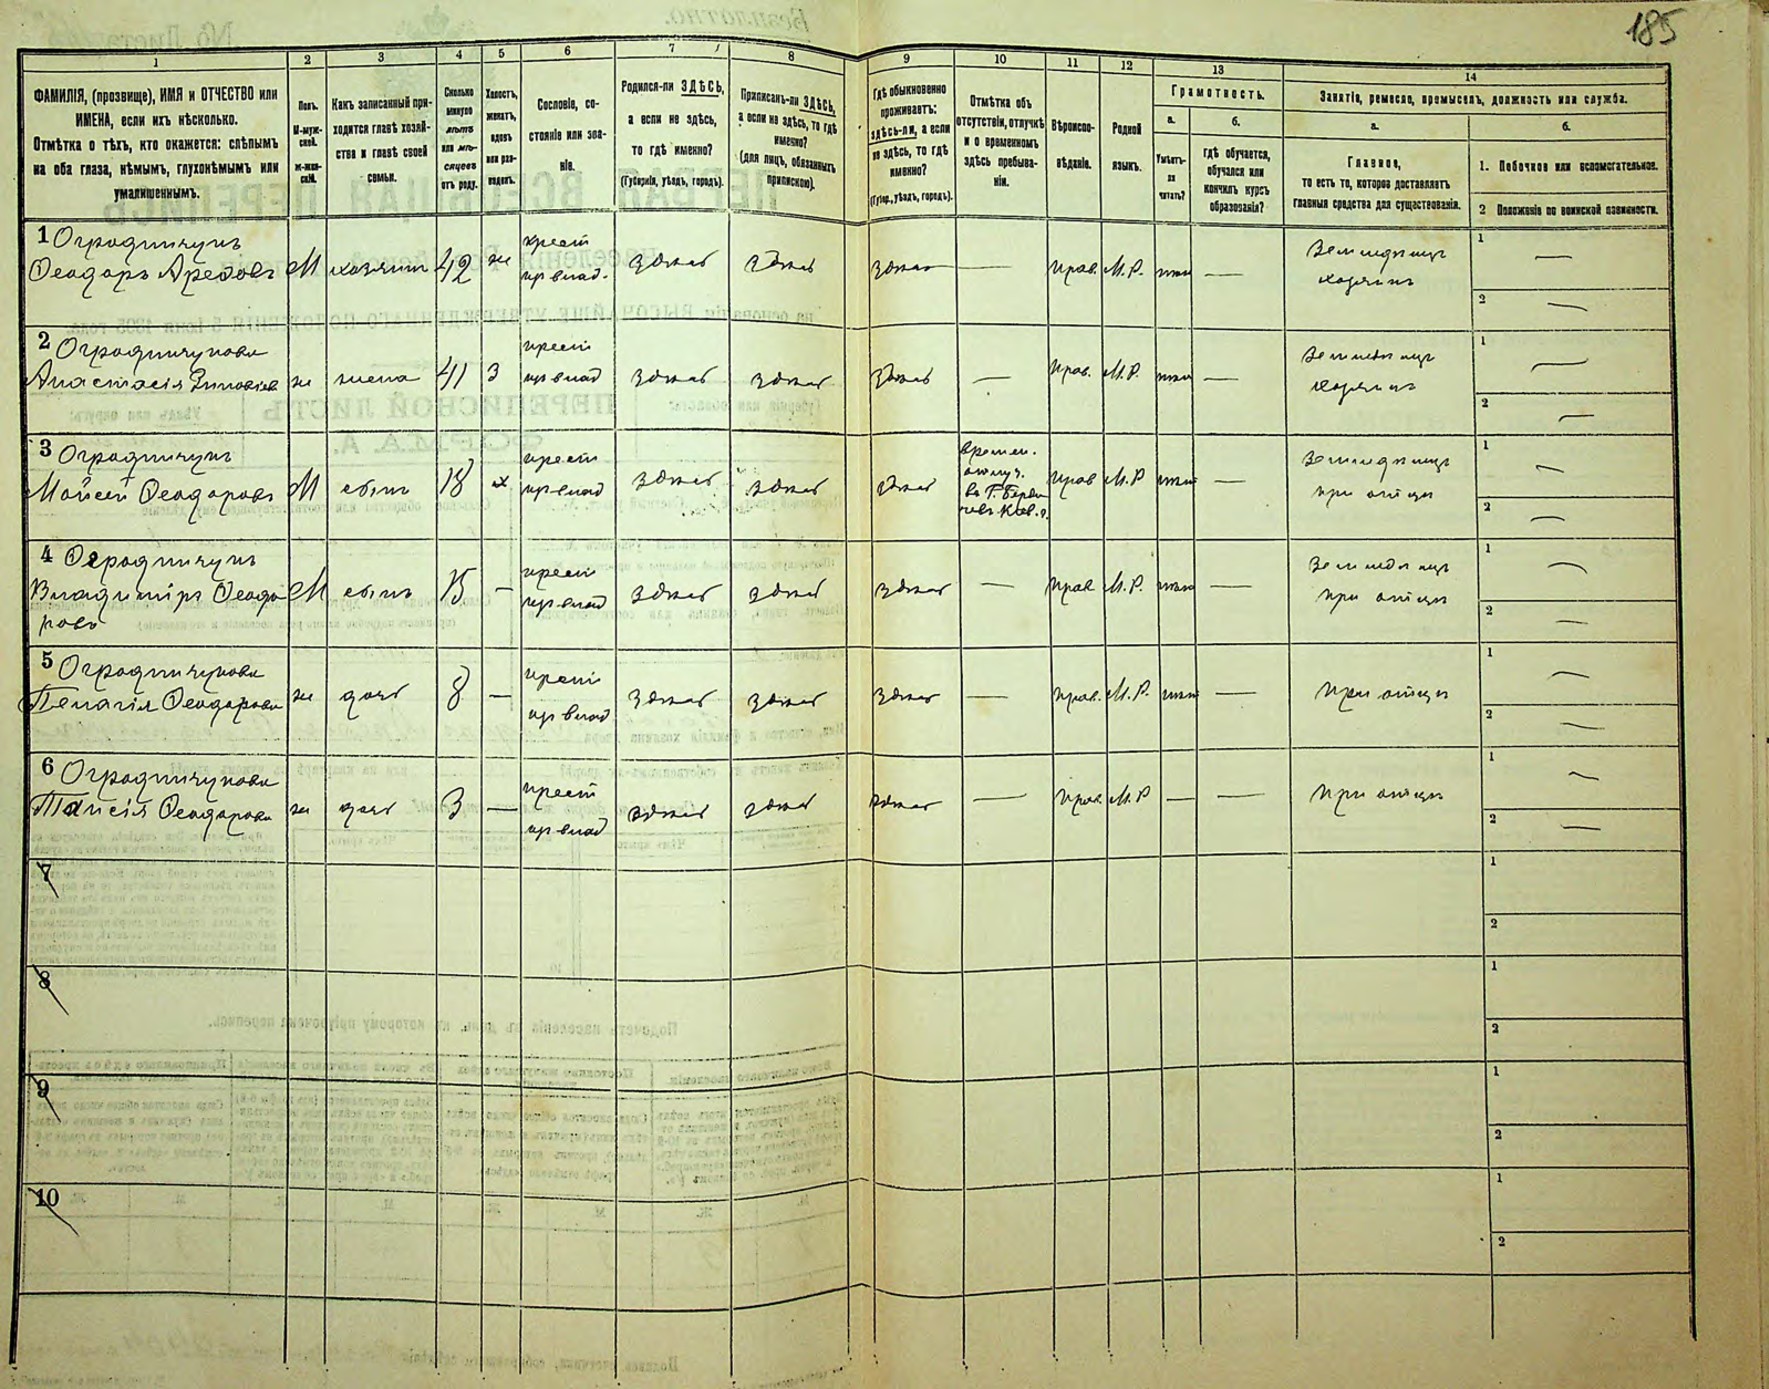 185
1
2
3
4
5
6
7
8
9
10
11
12
13
14
ФАМИЛІЯ, (прозвище), ИМЯ и ОТЧЕСТВО или
ИМЕНА, если ихъ нѣсколько.
Отмѣтка о тѣхъ, кто окажется: слѣпымъ
на оба глаза, нѣмымъ, глухонѣмымъ или
умалишеннымъ.
Полъ.
М-муж-
ской.
Ж-жен-
скій.
Какъ записанный при-
ходится главѣ хозяй-
ства и главѣ своей
семьи.
Сколько
минуло
лѣтъ
или мѣ-
сяцевъ
отъ роду.
Холостъ,
женатъ,
вдовъ
или раз-
веденъ.
Сословіе, со-
стояніе или зва-
ніе.
Родился-ли ЗДѢСЬ,
а если не здѣсь,
то гдѣ именно?
(Губернія, уѣздъ, городъ).
Приписанъ-ли ЗДѢСЬ,
а если не здѣсь, то гдѣ
именно?
(для лицъ, обязанныхъ
припискою).
Гдѣ обыкновенно
проживаетъ:
здѣсь-ли, а если
не здѣсь, то гдѣ
именно?
(Губер., уѣздъ, городъ).
Отмѣтка объ
отсутствіи, отлучкѣ
и о временномъ
здѣсь пребыва-
ніи.
Вѣроиспо-
вѣданіе.
Родной
языкъ.
Грамотность.
а.
Умѣетъ-
ли
читать?
б.
Гдѣ обучается,
обучался или
кончилъ курсъ
образованія?
Занятіе, ремесло, промыселъ, должность или служба.
а.
Главное,
то есть то, которое доставляетъ
главныя средства для существованія.
б.
1. Побочное или вспомогательное.
2 Положеніе по воинской повинности.
1 Оградничукъ
Феодоръ М хозяинъ 42 ж крест здѣсь здѣсь здѣсь — прав. М.Р. — Земледѣлецъ 1 —
хозяинъ 2 —
2 Оградничукова
Анастасія ж жена 41 З крест здѣсь здѣсь здѣсь — прав. М.Р. — Земледѣлецъ 1 —
2 —
3 Оградничукъ
Моисей Феодоровъ М сынъ 18 х крест здѣсь здѣсь здѣсь времен.
отлуч.
въ Г. Берди
чевъ Кіев. г. прав М.Р — Земледѣлецъ 1 —
при отцѣ 2 —
4 Оградничукъ
Владиміръ Феодо М сынъ 15 — крест здѣсь здѣсь здѣсь — прав М.Р. — Земледѣлецъ 1 —
ровъ при отцѣ 2 —
5 Оградничукова
Пелагія Феодорова ж дочь 8 — крест здѣсь здѣсь здѣсь — прав. М.Р. — при отцѣ 1 —
2 —
6 Оградничукова
Таисія Феодорова ж дочь 3 — крест здѣсь здѣсь здѣсь — прав М.Р — — при отцѣ 1 —
2 —
7 1
2
8 1
2
9 1
2
10 1
2